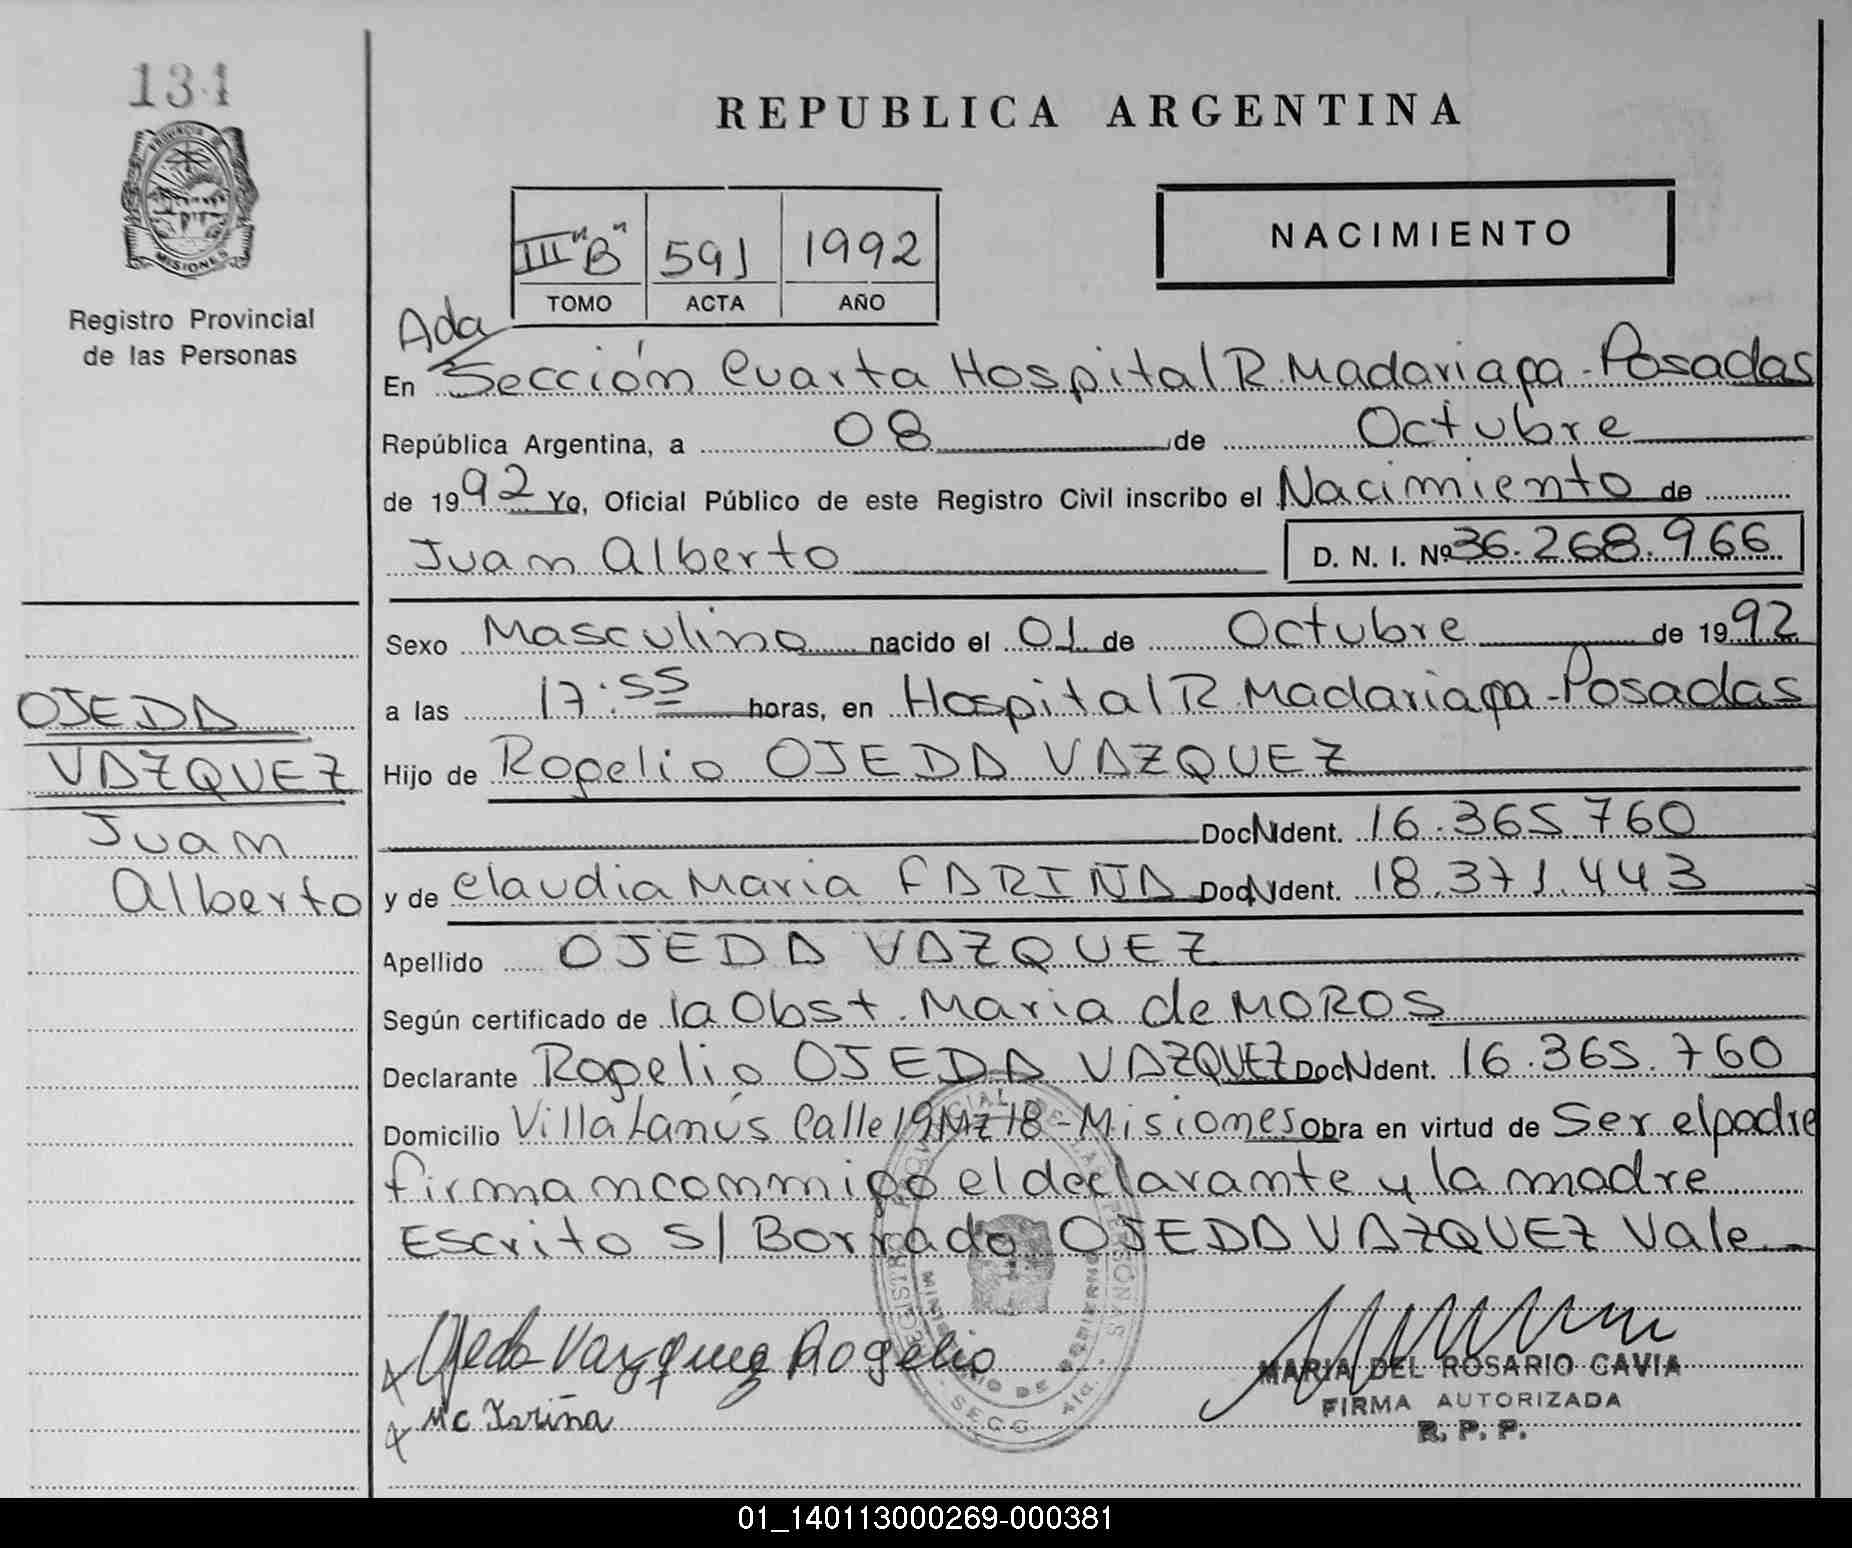 131
PROVINCIA DE
MISIONES
Registro Provincial
de las Personas
REPUBLICA ARGENTINA
III "B" 591 1992
TOMO ACTA AÑO
NACIMIENTO
Ada
En Sección Cuarta Hospital R. Madariaga - Posadas
República Argentina, a 08 de Octubre
de 1992 Yo, Oficial Público de este Registro Civil inscribo el Nacimiento de
Juan Alberto D. N. I. Nº 36.268.966
Sexo Masculino nacido el 01 de Octubre de 1992
a las 17:55 horas, en Hospital R. Madariaga - Posadas
Hijo de Rogelio OJEDA VAZQUEZ
Doc N Ident. 16.365.760
y de Claudia Maria FARIÑA Doc N Ident. 18.371.443
Apellido OJEDA VAZQUEZ
Según certificado de la Obst. Maria de MOROS
Declarante Rogelio OJEDA VAZQUEZ Doc N Ident. 16.365.760
Domicilio Villa Lanús Calle 19 Mz 18 - Misiones Obra en virtud de Ser el padre
firman conmigo el declarante y la madre
Escrito S/ Borrado OJEDA VAZQUEZ Vale
OJEDA
VAZQUEZ
Juan
Alberto
Ojeda Vazquez Rogelio
Mc Fariña
REGISTRO PROVINCIAL DE LAS PERSONAS
MINISTERIO DE GOBIERNO
MARIA DEL ROSARIO CAVIA
FIRMA AUTORIZADA
R. P. P.
01_140113000269-000381